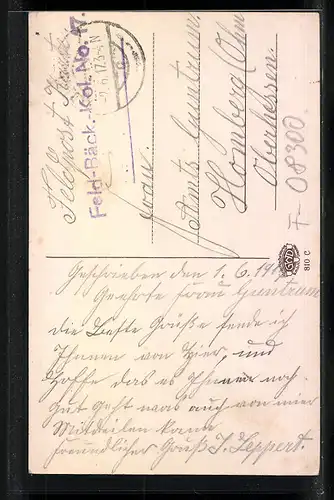 Feldpost
Feld-Bäck.-Kol. No. 17.
2.6.17.3-4N
Frau
Amts Guntrum
Homberg (Ohm
Oberhessen.
F-08300
810 C
Geschrieben den 1.6.191
Geehrte Frau Guntrum
die Beste Grüße sende ich
Ihnen von Hier und
Hoffe das es Ihnen noch
gut geht was auch von mir
Mitteilen kann
freundlicher Gruß J. Leppert.